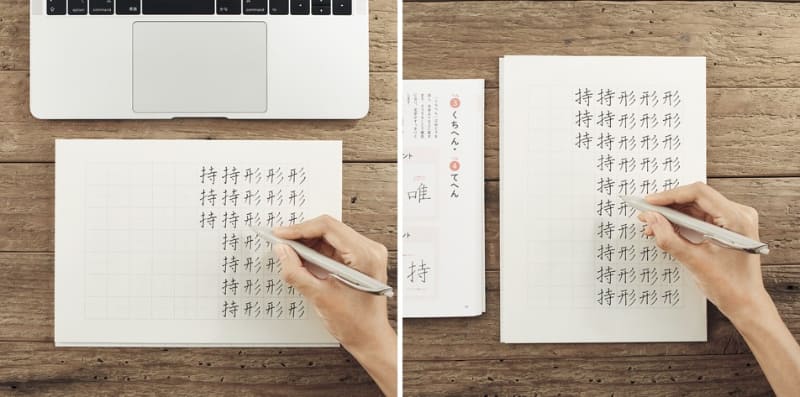 option
command
英数
かな
command
形形形形形形形
形形形形形形形
形形形形形形形
持持持持持持持
持持持
3 くちへん・
4 てへん
ント
唯
ント
持
形形形形形形形形形形
形形形形形形形形形形
形形形形形形形形形形
持持持持持持持持持持
持持持